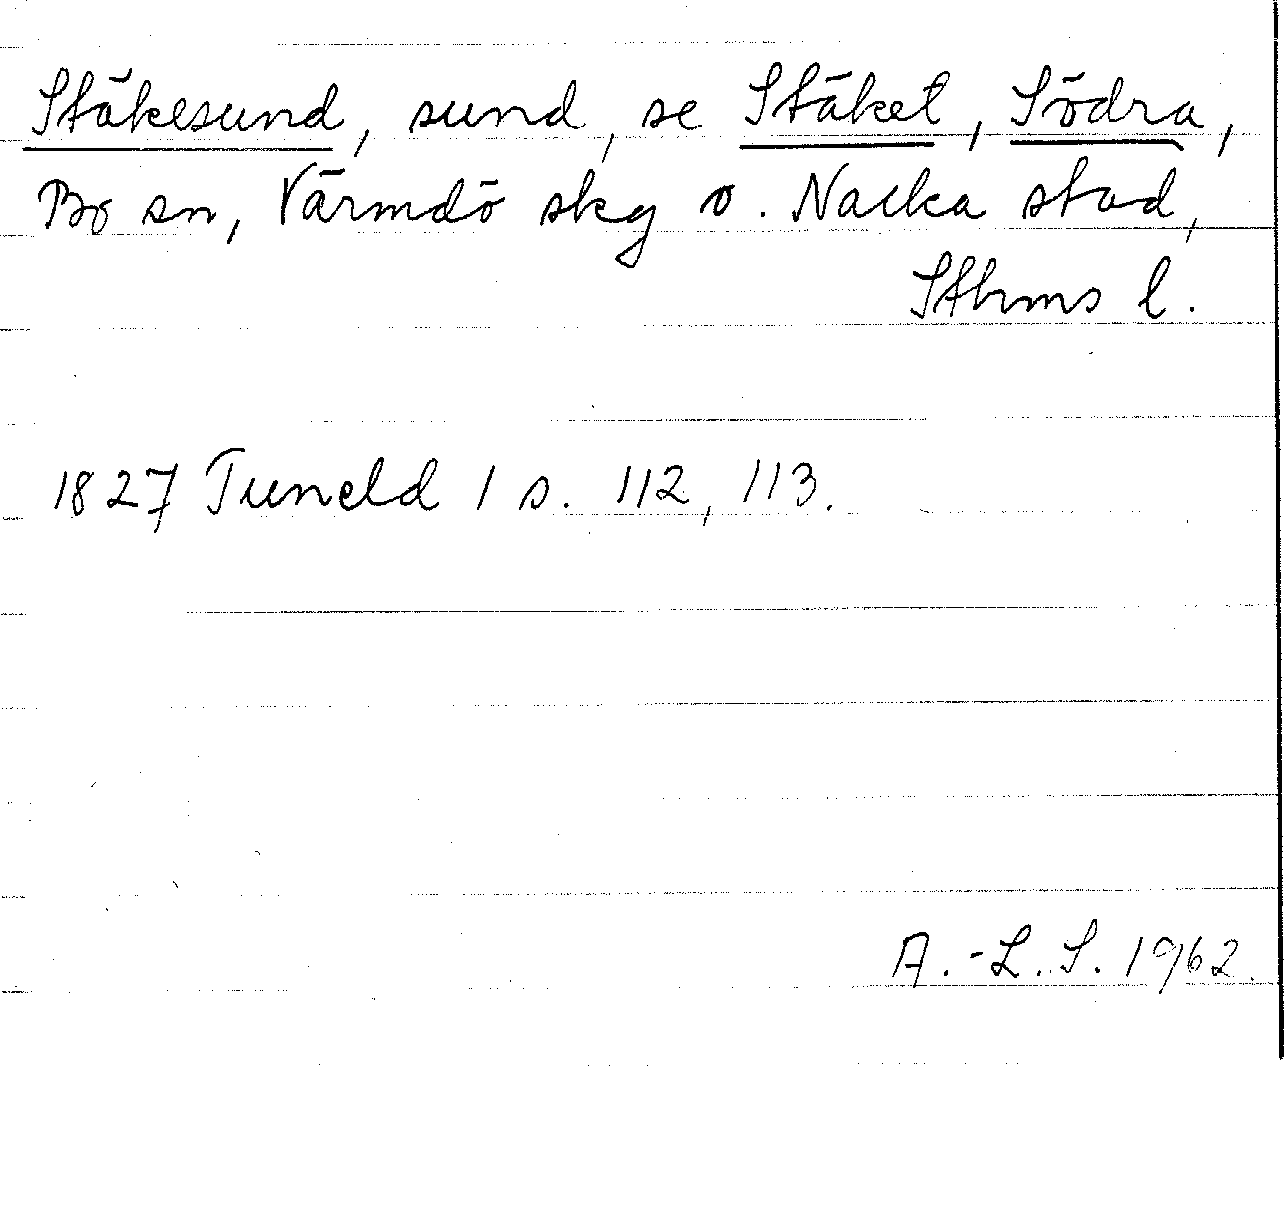 Stäkesund, sund, se Stäket, Södra,
Bo sn, Värmdö skg o. Nacka stad,
Sthms l.
1827 Tuneld 1 s. 112, 113.
A.-L. S. 1962.